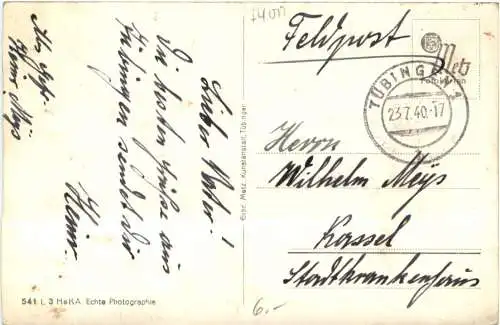 Feldpost
Metz
TÜBINGEN 1
23.7.40.-17
Lieber Vater!
Die besten Grüße aus
Tübingen sendet Dir
Heinr.
Abs. Gefr.
Heinr. Meÿs
Gebr. Metz, Kunstanstalt, Tübingen
Herrn
Wilhelm Meÿs
Kassel
Stadtkrankenhaus
541 L 3 HaKA Echte Photographie
6.-